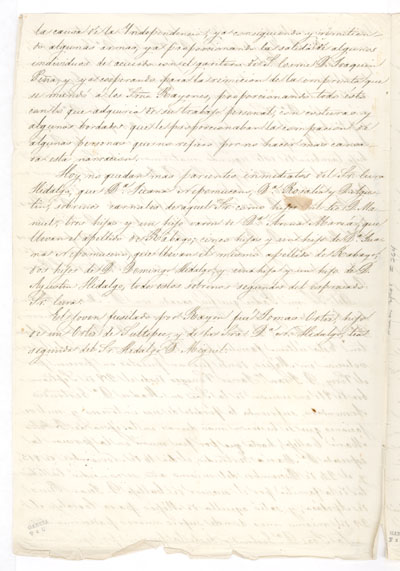 la causa de la Independencia; ya consiguiendo y remitien-
do algunas armas, ya proporcionando la salida de algunos
individuos de acuerdo con el
Peña y, y cooperando para la remision de la imprenta que
se mandó a los Sres Rayones, proporcionando todo esto
con lo que adquiria de su trabajo personal, con costuras y
algunos bordados que le proporcionaban la compasion de
algunas personas que no refiero por no hacer mas cansa-
da esta narracion.
Hoy no quedan mas parientes inmediatos del Sr. Cura
Hidalgo, que Da. Juana Nepomucena, Da. Rosalia y D. Agus-
tin, sobrinos carnales de aquel Sr. como hijos del Sr. D. Ma-
nuel; tres hijas y un hijo varon de Da. Anna Maria, que
llevan el apellido de Rabago; cinco hijas y un hijo de Da. Jua-
na Nepomucena, que llevan el mismo apellido de Rabago,
dos hijos de D. Domingo Hidalgo, y una hija y un hijo de D.
Agustin Hidalgo, todos estos sobrinos segundos del espresado
Sr. Cura.
El joven fusilado por Rayon fué Tomas Ortiz, hijo
de un Ortiz de Sultepec, y de la Sra. Da. Hidalgo, tia
segunda del Sr. Hidalgo D. Miguel.